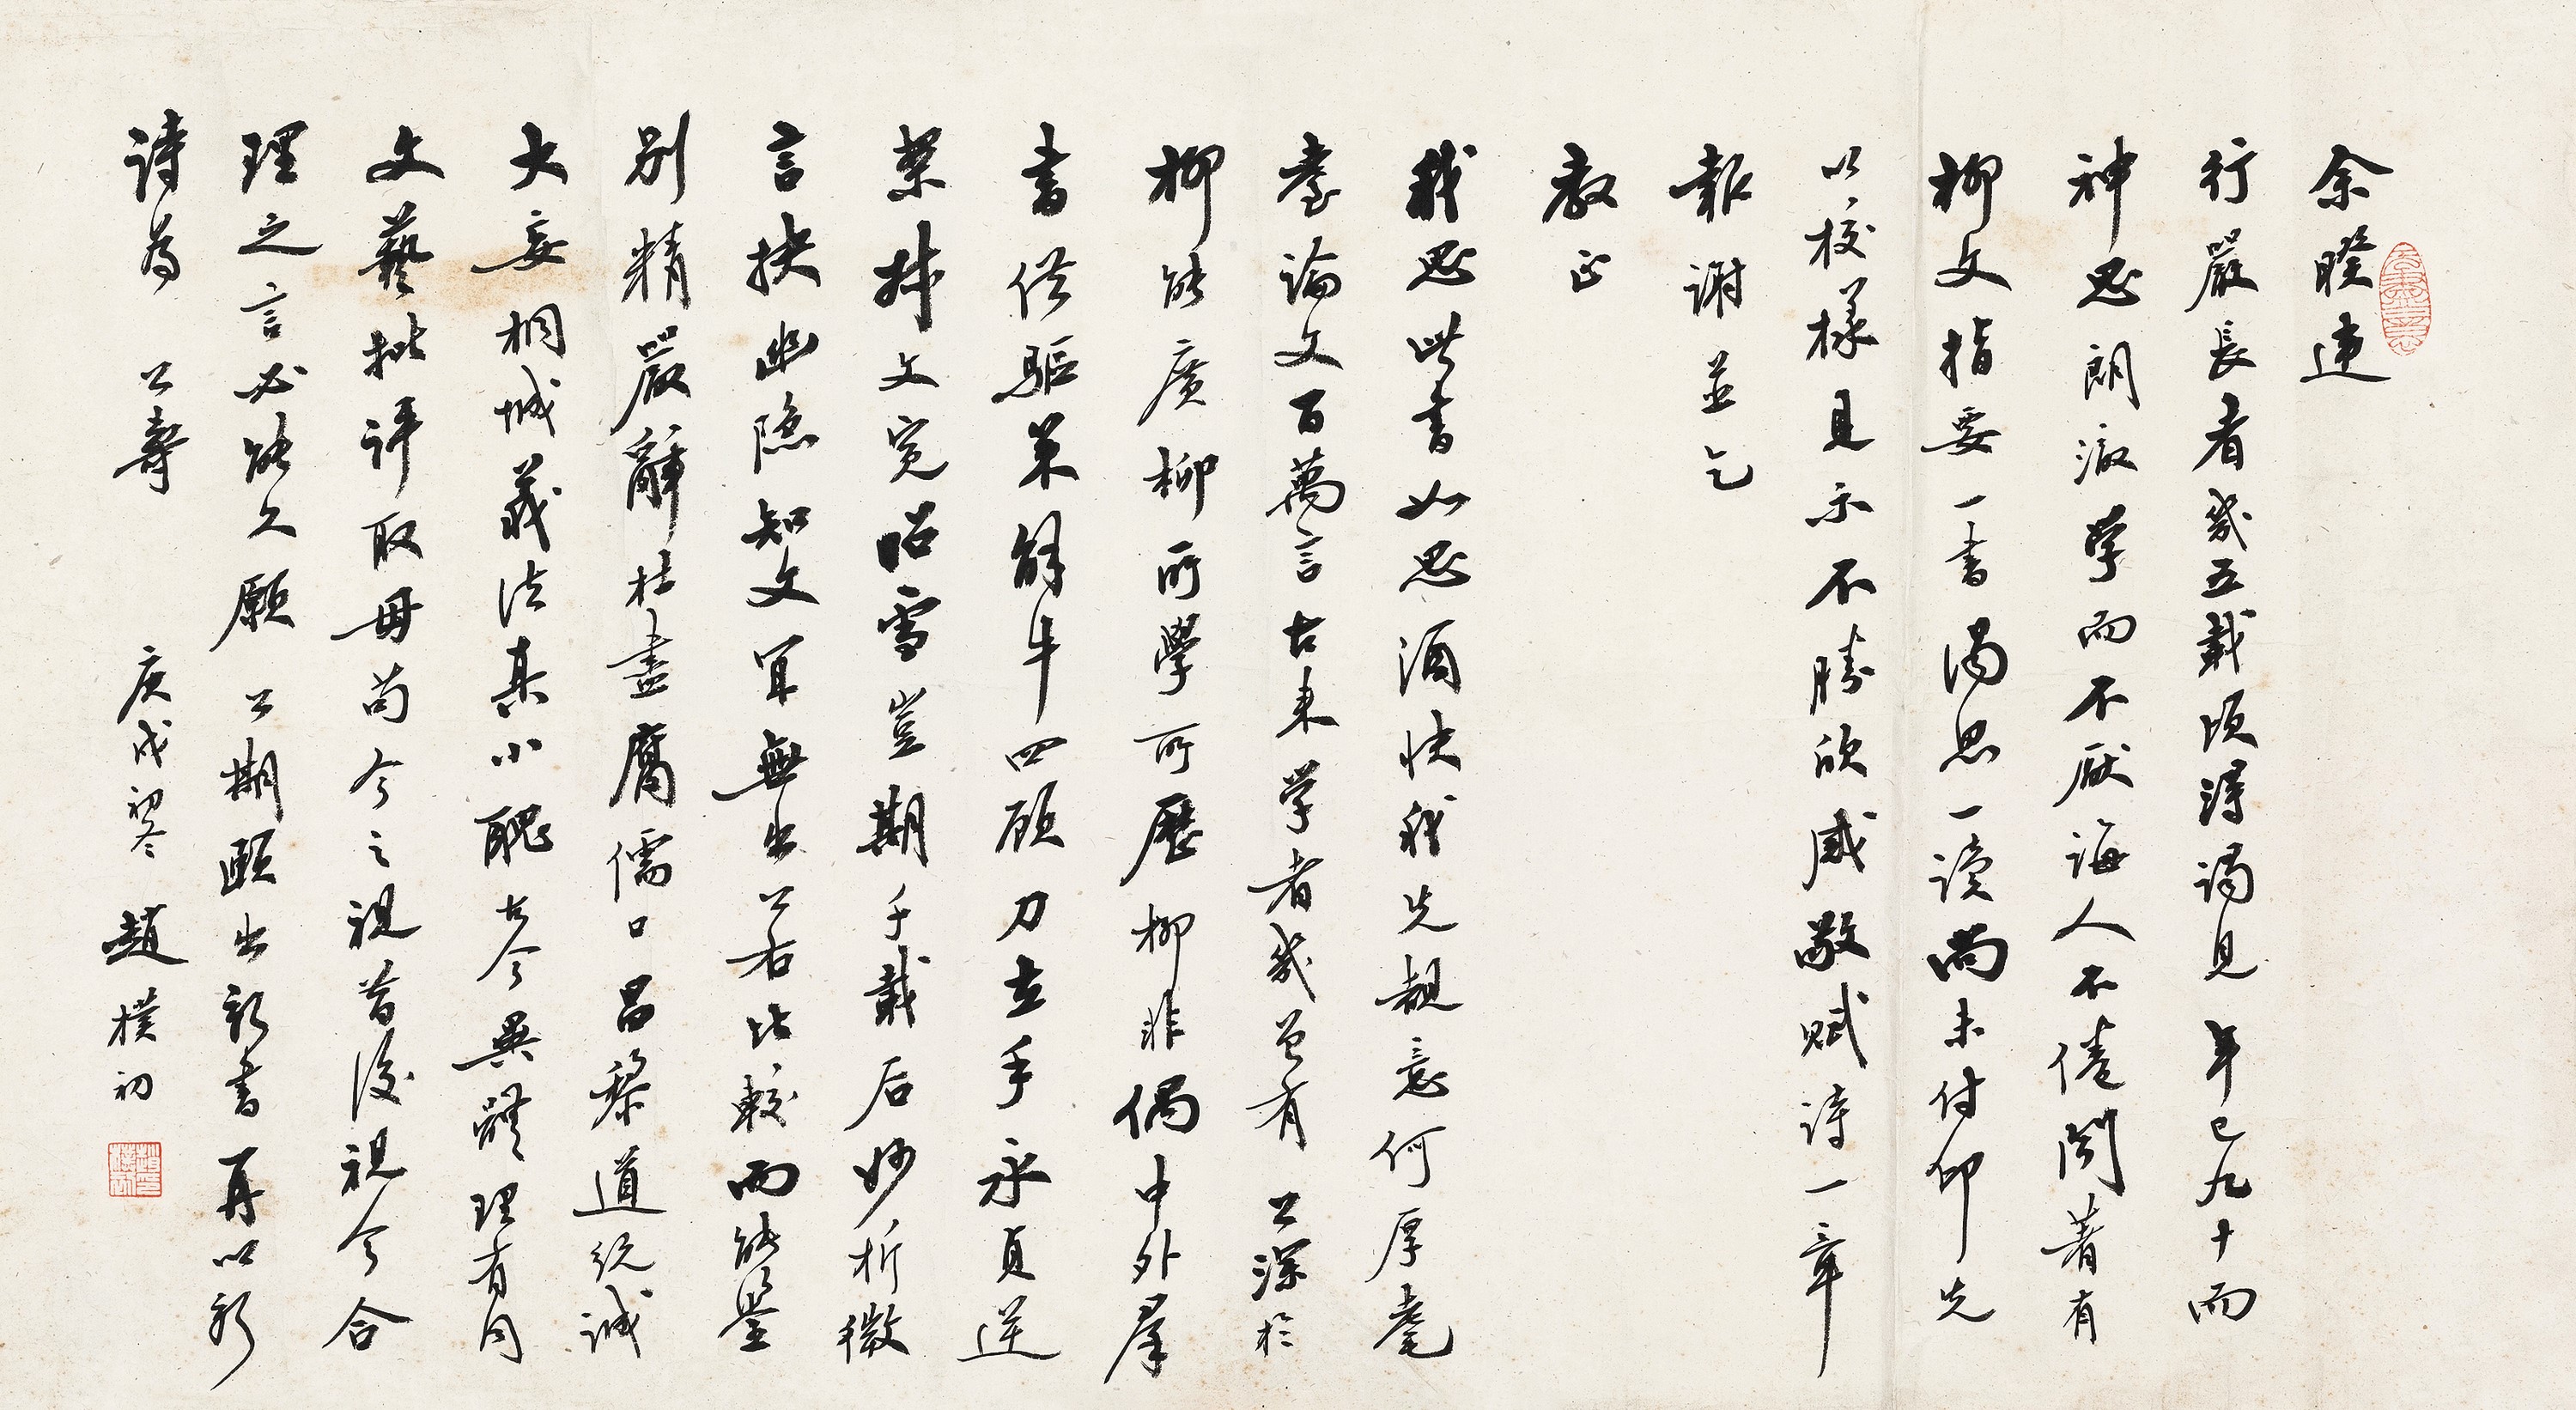 余暌違
行嚴長者幾五載頃得謁見年已九十而
神思朗澈学而不厭誨人不倦聞著有
柳文指要一書渴思一讀尚未付印先
以校樣見示不勝欣感敬賦詩一章
報謝並乞
教正
我思此書如思酒快我先覩意何厚耄
耋論文百萬言古來学者幾曾有公深於
柳能廣柳所學所歷柳非偶中外羣
書供驅策解牛四顧刀在手永貞逆
案叔文冤昭雪豈期千載后妙析微
言抉幽隐知文罕無出公右比較而能鑒
別精嚴辭枯盡腐儒口昌黎道統誠
大妄桐城義法真小醜古今異體理有同
文藝批評取毋苟今之視昔後視今合
理之言必能久願公期頤出新書再以新
詩為公壽 庚戌初冬 趙樸初
趙樸初